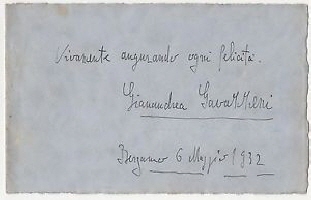 Vivamente augurando ogni felicità.
Gianandrea Gavazzeni
Bergamo 6 Maggio 1932